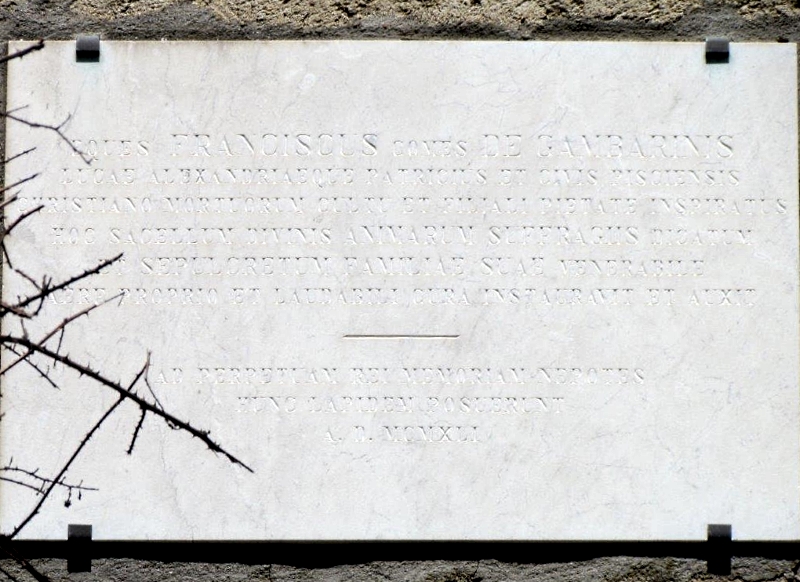 EQUES FRANCISCUS COMES DE GAMBARINIS
LUCAE ALEXANDRIAEQUE PATRICIUS ET CIVIS PISCIENSIS
CHRISTIANO MORTUORUM CULTU ET FILIALI PIETATE INSPIRATUS
HOC SACELLUM DIVINIS ANIMARUM SUFFRAGIIS DICATUM
ET SEPULCRETUM FAMILIAE SUAE VENERABILE
AERE PROPRIO ET LAUDABILI CURA INSTAURAVIT ET AUXIT
AD PERPETUAM REI MEMORIAM NEPOTES
HUNC LAPIDEM POSUERUNT
A. D. MCMXLI